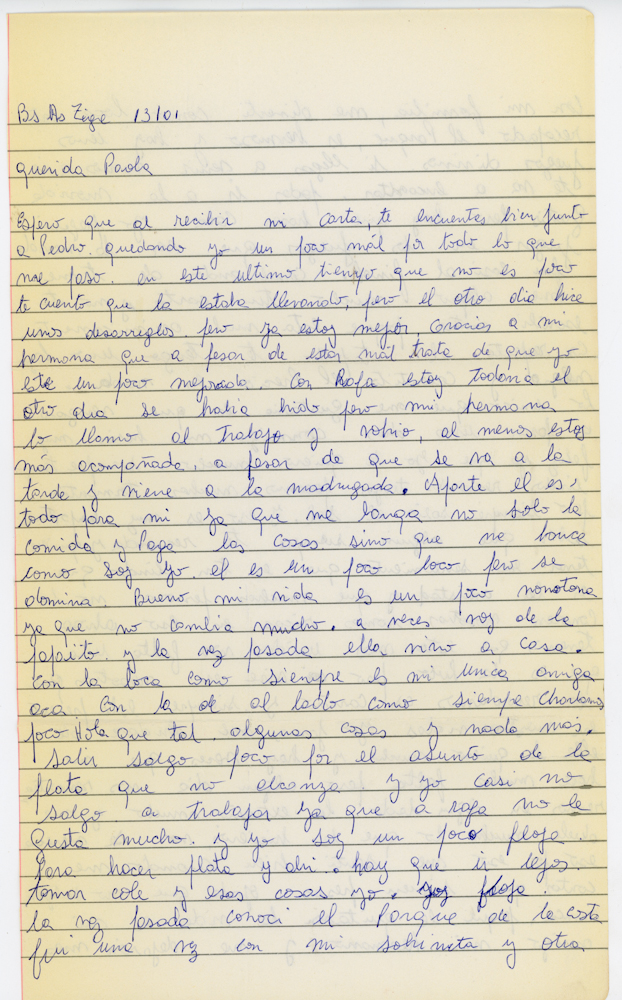 Bs As Tigre 13/01
querida Paola
Espero que al recibir mi carta, te encuentes bien junto
a Pedro. quedando yo un poco mál por todo lo que
me paso. en este ultimo tiempo que no es poco
te cuento que la estaba llevando, pero el otro dia hice
unos desarreglos pero ya estoy mejor, Gracias a mi
hermana que a pesar de estar mal trata de que yo
este un poco mejorada. Con Rafa estoy todavia el
otro dia se habia hido pero mi hermana
lo llamo al trabajo y volvio, al menos estoy
más acompañada, a pesar de que se va a la
tarde y viene a la madrugada. Aparte el es,
todo para mi ya que me banca no solo la
comida y Paga las cosas sino que me banca
como soy yo. el es un poco loco pero se
domina. Bueno mi vida es un poco monotona
ya que no cambia mucho. a veces voy de la
papito. y la vez pasada ella vino a casa.
Con la loca como siempre es mi unica amiga
aca con la de al lado como siempre charlamos
poco Hola que tal. algunas cosas y nada mas.
salir salgo poco por el asunto de la
plata que no alcanza. y yo casi no
salgo a trabajar ya que a rafa no le
gusta mucho. y yo soy un poco floja
para hacer plata y ahi.. hay que ir lejos.
tomar cole y esas cosas yo. soy floja.
la vez pasada conoci el Parque de la costa
fui una vez con mi sobrinita y otra